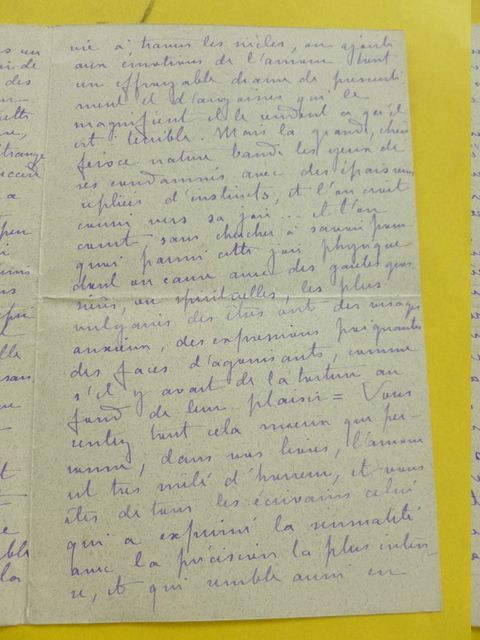 vie à travers les siècles, on ajoute
aux émotions de l'amour tout
un effroyable drame de pressenti
ment et d'angoisses qui le
magnifient et le rendent ce qu'il
est : terrible. Mais la grande, chère
féroce nature bande les yeux de
ses condamnés avec des épaisseurs
replies d'instincts, et l'on croit
courir vers sa joie... et l'on
court, sans chercher à savoir pour-
quoi parmi cette joie physique
dont on cause avec des gaietés gros
sières, ou spirituelles, les plus
vulgaires des êtres ont des visages
anxieux, des expressions
des faces d'agonisants, comme
s'il y avait de la torture au
fond de leur plaisir = Vous
sentez tout cela mieux que per-
sonne, dans vos livres, l'amour
est très mêlé d'horreur, et vous
êtes de tous les écrivains celui
qui a exprimé la sensualité
avec la précision la plus inten
se, et qui semble aussi en